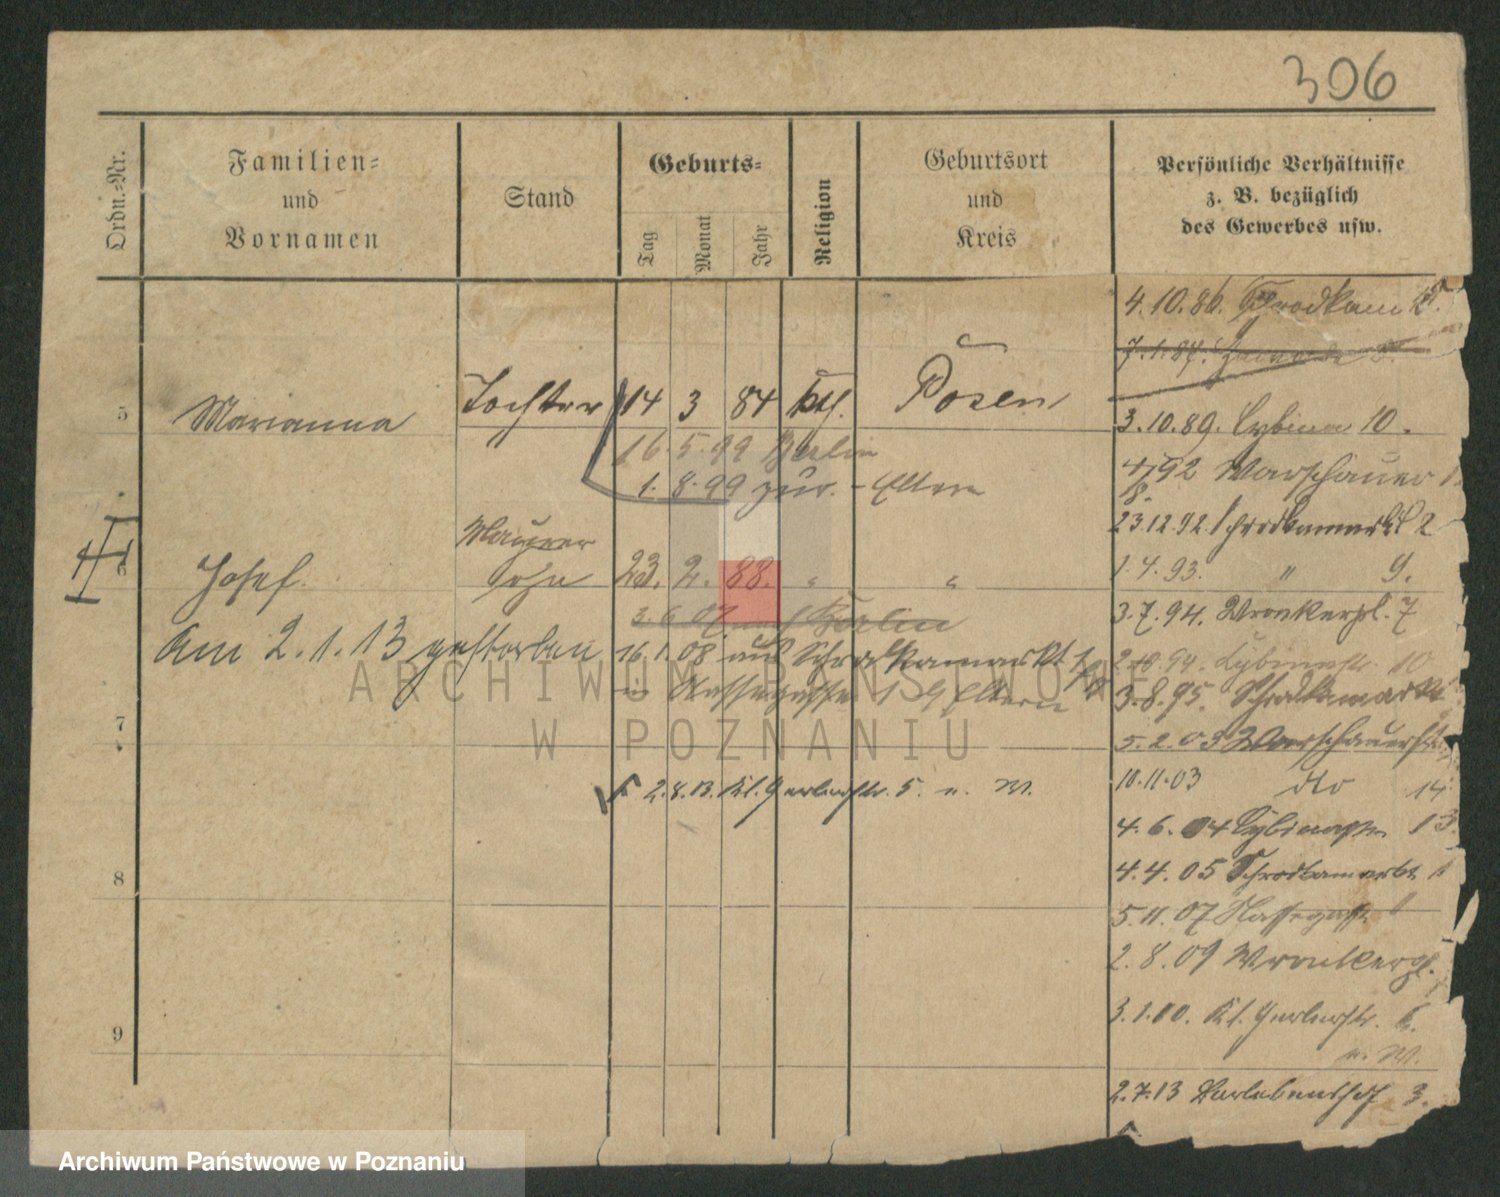 306
Ordn.-Nr.
Familien-
und
Vornamen
Stand
Geburts-
Tag
Monat
Jahr
Religion
Geburtsort
und
Kreis
Persönliche Verhältnisse
z. B. bezüglich
des Gewerbes usw.
5 Marianna Tochter 14 3 84 kth. Posen
16.5.99 Berlin
1.8.99 zur. - Eltern
6 Josef. Maurer
23. 2. 88. " "
3.6.07 Berlin
Am 2.1.13 gestorben
16.1.08 aus Schrodkamarkt
in 1 Eltern
7
2.8.13. Kl. Gerberstr. 5. u. W.
8
9
4.10.86.
7.1.87.
3.10.89. Cybina 10.
92 Warschauer
23.12.92. Schrodkamarkt 2
1.4.93. " 9.
3.7.94. Wronkerpl. 7
94. Cybinastr. 10
3.8.95. Schrodkamarkt
5.2.03 Warschauerstr.
10.11.03 dto 14
4.6.04 Cybinastr. 13.
4.4.05 Schrodkamarkt
5.11.07
2.8.09 Wronkerpl.
3.1.10. Kl. Gerberstr.
u. W.
2.7.13 3.
ARCHIWUM PAŃSTWOWE
W POZNANIU
Archiwum Państwowe w Poznaniu